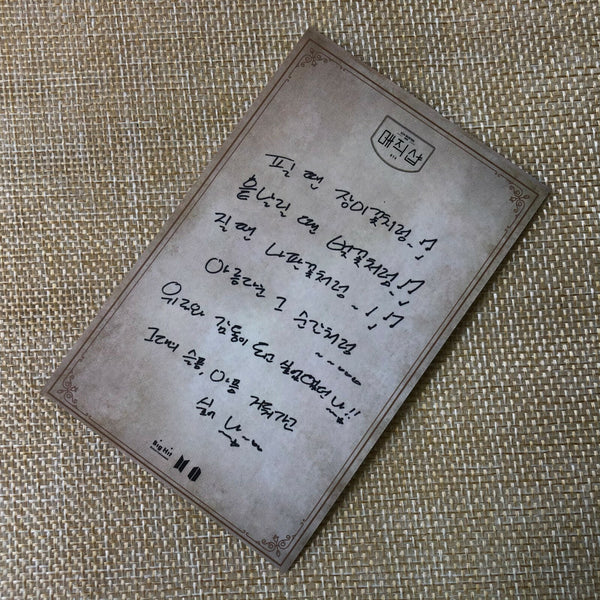 매직샵
필 땐 장미꽃처럼~♪♫
흩날릴 땐 벚꽃처럼~♪♫
질 땐 나팔꽃처럼~♪♫
아름다운 그 순간처럼
~~~~
위로와 감동이 되고 싶었었던 나~!!
그대의 슬픔, 아픔 거둬가고
싶어 나~~
Big Hit